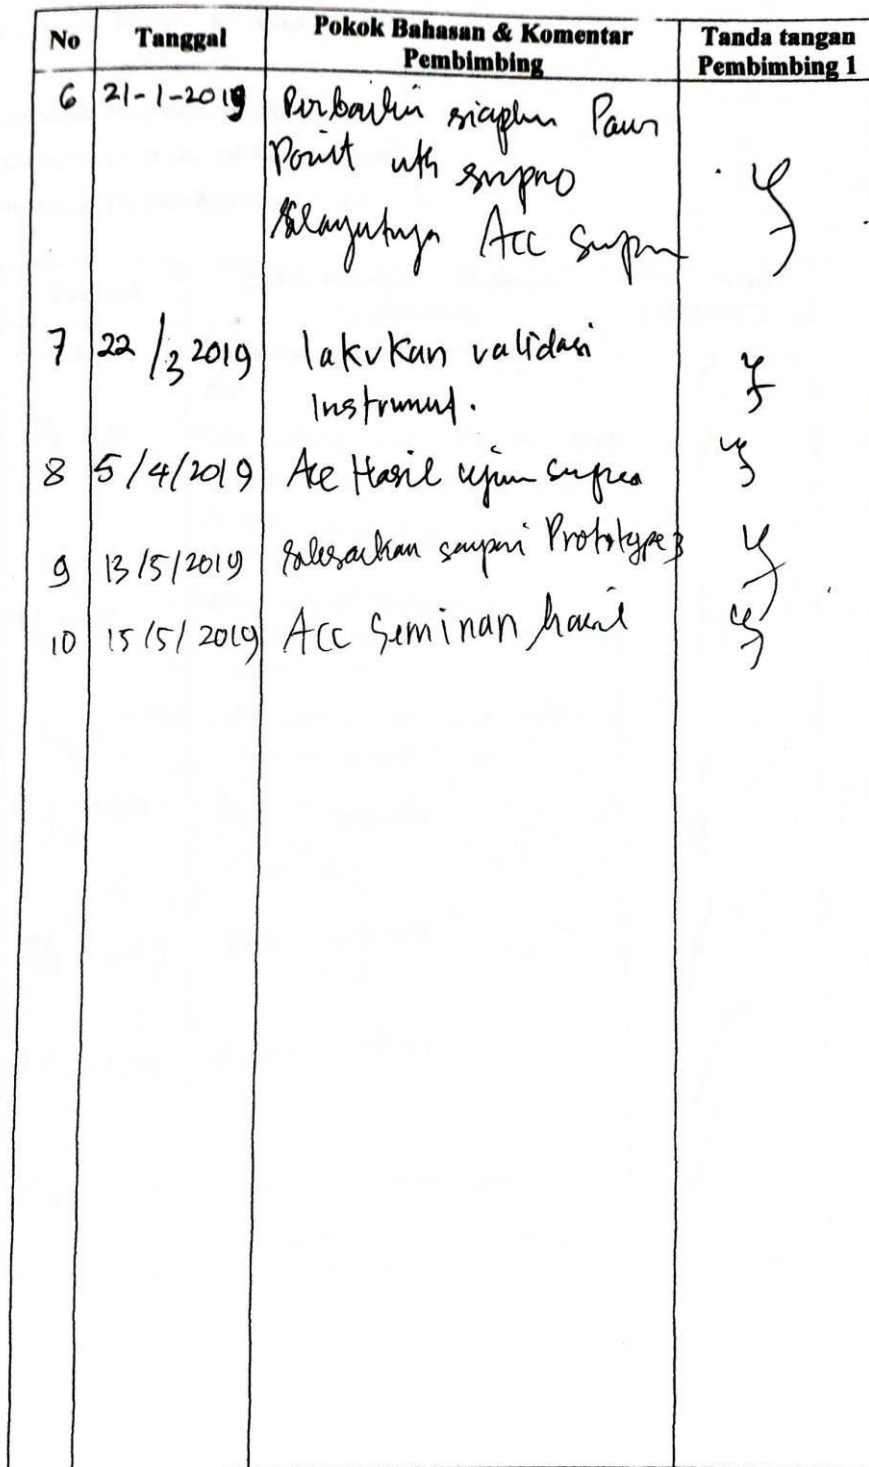 No Tanggal Pokok Bahasan & Komentar Pembimbing Tanda tangan Pembimbing 1
6 21-1-2019 Perbaiki siapkan Pawr
Point utk sempro
Selanjutnya Acc
7 22/3 2019 lakukan validasi
Instrumen.
8 5/4/2019 Acc Hasil ujian
9 13/5/2019 Selesaikan sampai Prototype 3
10 15/5/2019 Acc Seminar hasil